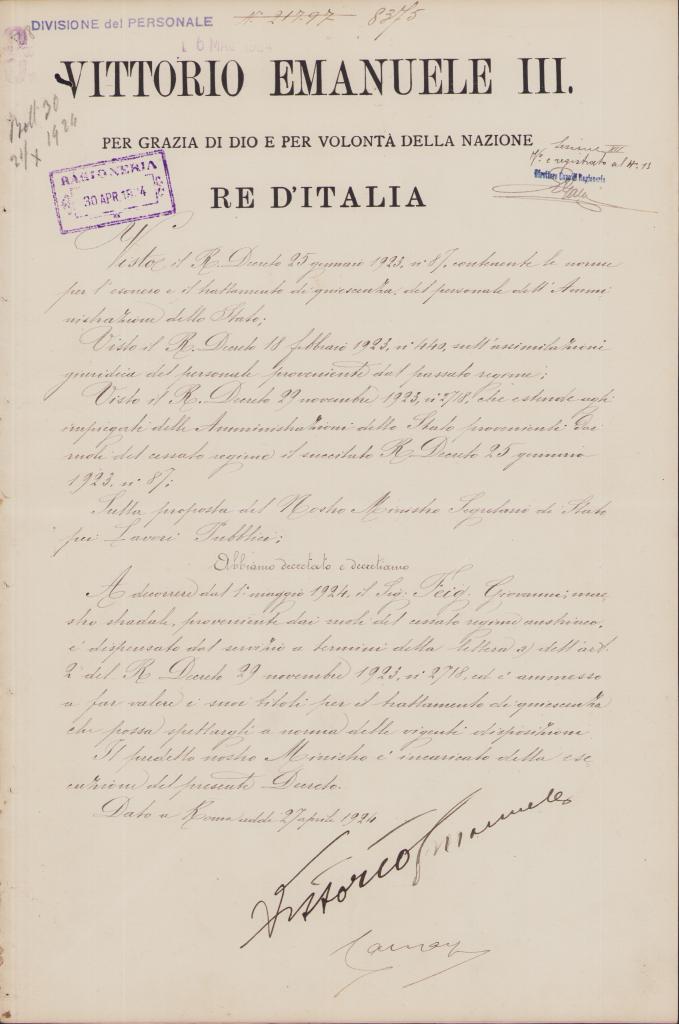 DIVISIONE del PERSONALE
N. 21797 8375
VITTORIO EMANUELE III.
PER GRAZIA DI DIO E PER VOLONTÀ DELLA NAZIONE
RE D'ITALIA
Boll 30
21/X 1924
RAGIONERIA
30 APR. 1924
Visto il R. Decreto 25 gennaio 1923, n° 87, contenente le norme
per l'esonero e il trattamento di quiescenza, del personale dell'Ammi
nistrazione dello Stato;
Visto il R. Decreto 18 febbraio 1923, n° 440, sull'assimilazioni
giuridica del personale proveniente dal passato regime;
Visto il R. Decreto 29 novembre 1923, n° 2718, che estende agli
impiegati delle Amministrazioni dello Stato provenienti dai
ruoli del cessato regime il succitato R. Decreto 25 gennaio
1923, n° 87;
Sulla proposta del Nostro Ministro Segretario di Stato
pei Lavori Pubblici;
Abbiamo decretato e decretiamo
A decorrere dal 1° maggio 1924, il Sig. Feig Giovanni, mae
stro stradale, proveniente dai ruoli del cessato regime austriaco,
e' dispensato dal servizio a termini della lettera a) dell'art.
2° del R. Decreto 29 novembre 1923, n° 2718, ed e' ammesso
a far valere i suoi titoli per il trattamento di quiescenza
che possa spettargli a norma delle vigenti disposizioni.
Il predetto nostro Ministro e' incaricato della ese
cuzione del presente Decreto.
Dato a Roma addi 27 aprile 1924
Vittorio Emanuele